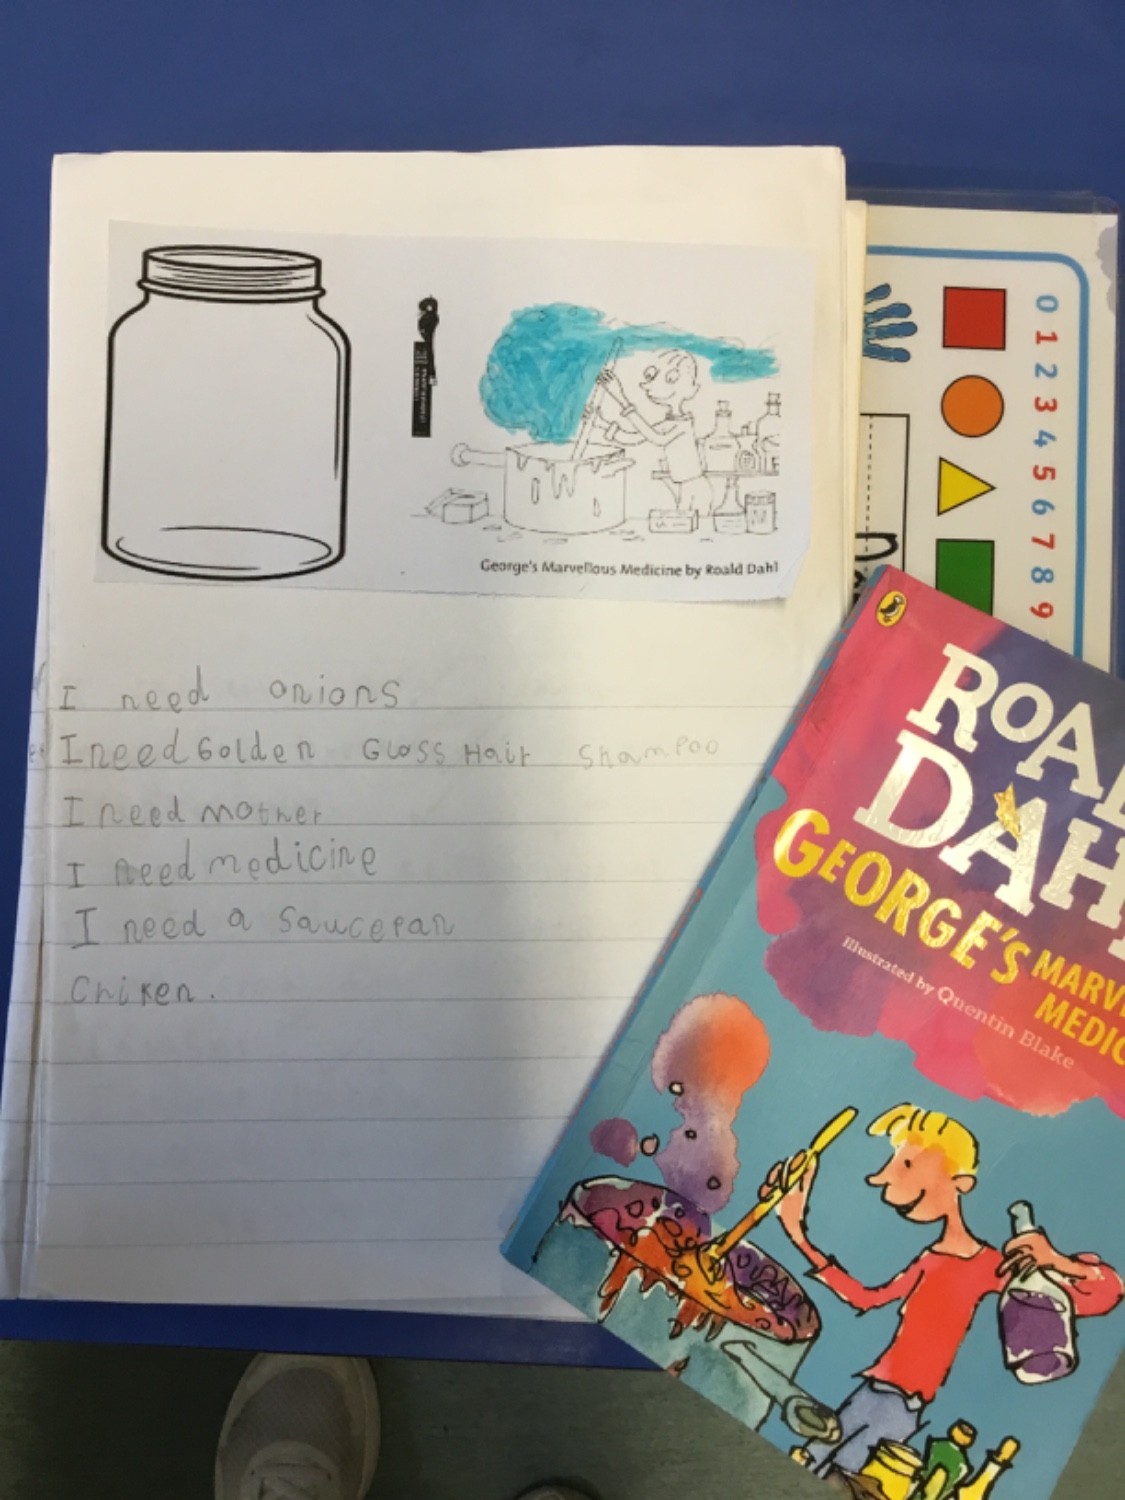 George's Marvellous Medicine by Roald Dahl
I need onions
I need Golden Gloss Hair Shampoo
I need mother
I need medicine
I need a saucepan
Chiken.
0
1
2
3
4
5
6
7
8
9
ROAL
DAHL
GEORGE'S
MARV
MEDIC
Illustrated by Quentin Blake